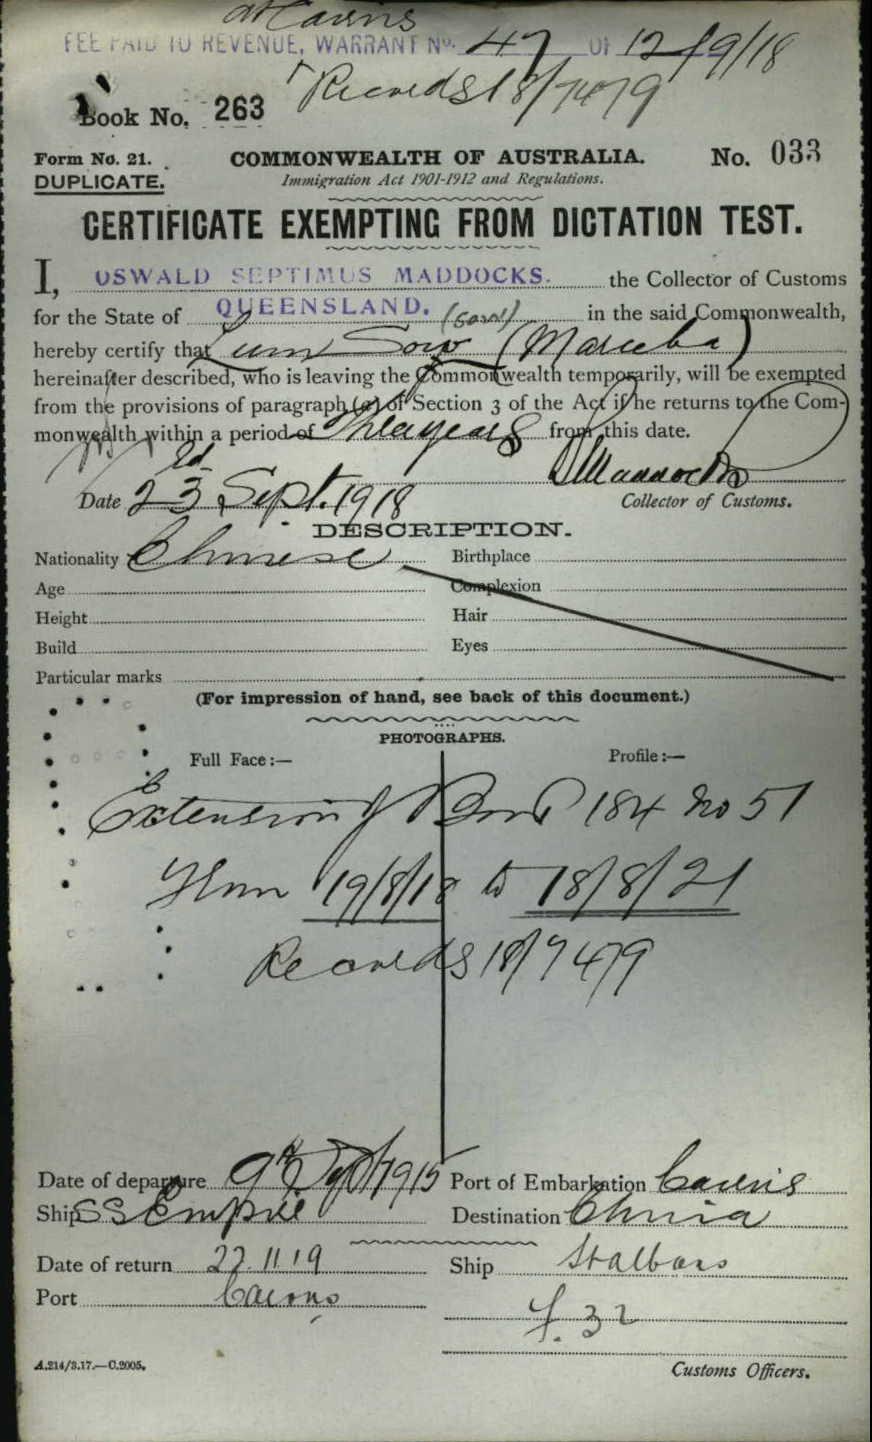 At Cairns
FEE PAID TO REVENUE, WARRANT No. 47 OF 12/9/18
Records 18/7479
Book No. 263
Form No. 21. COMMONWEALTH OF AUSTRALIA. No. 033
DUPLICATE. Immigration Act 1901-1912 and Regulations.
CERTIFICATE EXEMPTING FROM DICTATION TEST.
I, OSWALD SEPTIMUS MADDOCKS. the Collector of Customs
for the State of QUEENSLAND. in the said Commonwealth,
hereby certify that Lum Sow (Mareeba)
hereinafter described, who is leaving the Commonwealth temporarily, will be exempted
from the provisions of paragraph (a) of Section 3 of the Act if he returns to the Com-
monwealth within a period of Three years from this date.
OSMaddocks
Date 23rd Sept. 1918 Collector of Customs.
DESCRIPTION.
Nationality Chinese Birthplace
Age Complexion
Height Hair
Build Eyes
Particular marks
(For impression of hand, see back of this document.)
PHOTOGRAPHS.
Full Face:— Profile:—
Extension of Book 184 No 51
From 19/8/18 to 18/8/21
Records 18/7479
Date of departure 9th Sept 1915 Port of Embarkation Cairns
Ship SS Empire Destination China
Date of return 22.11.19 Ship St Albans
Port Cairns
f. 32
A.214/3.17.—C.2005. Customs Officers.